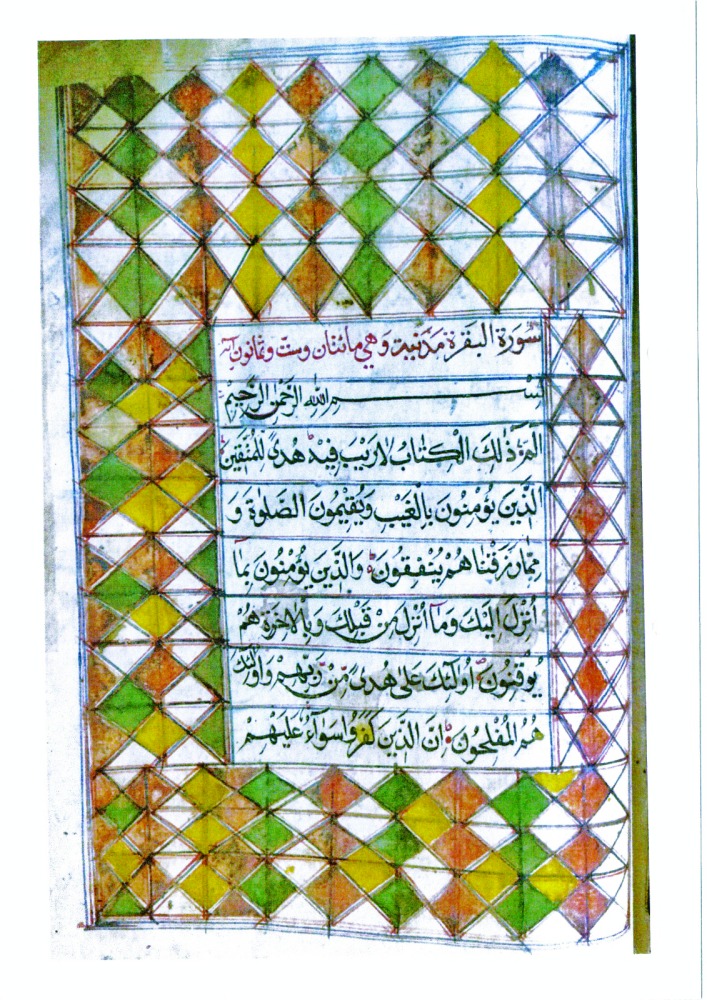 سورة البقرة مدنية وهي مائتان وست وثمانون آية
بسم الله الرحمن الرحيم
الم ذٰلك الكتٰب لا ريب فيه هدى للمتقين
الذين يؤمنون بالغيب ويقيمون الصلوٰة و
مما رزقناهم ينفقون والذين يؤمنون بما
انزل اليك وما انزل من قبلك وبالاخرة هم
يوقنون اولئك على هدى من ربهم واولئك
هم المفلحون ان الذين كفروا سواء عليهم